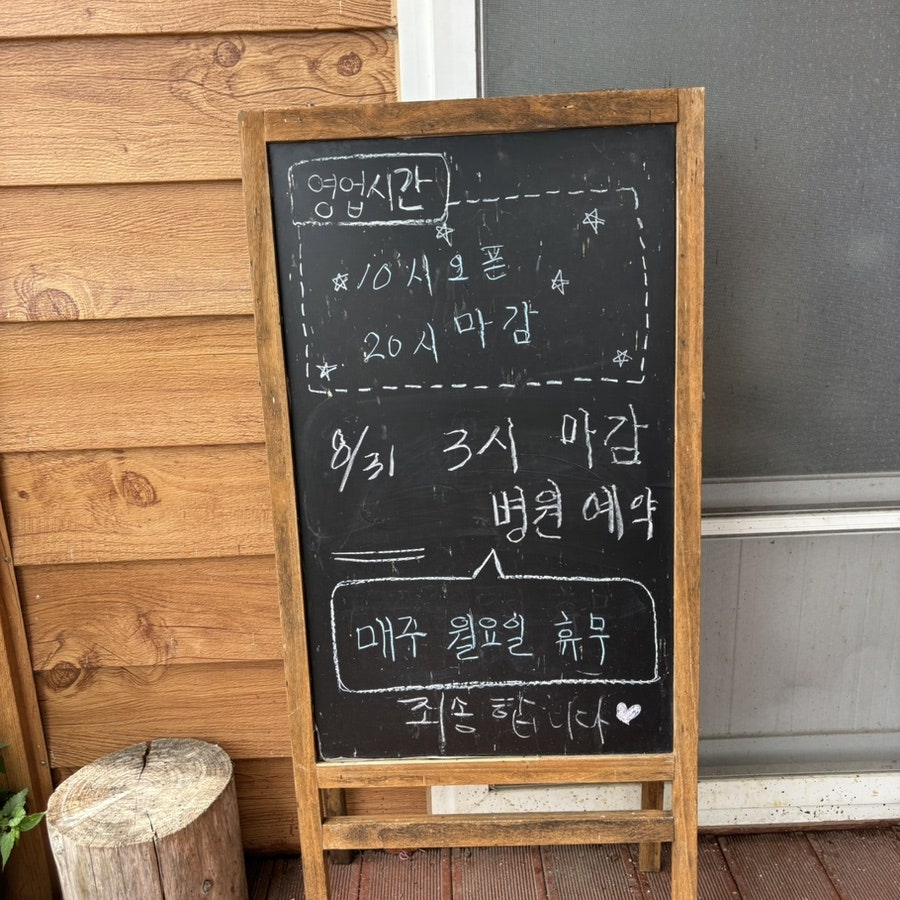 영업시간
10시 오픈
20시 마감
8/31 3시 마감
병원 예약
매주 월요일 휴무
죄송합니다